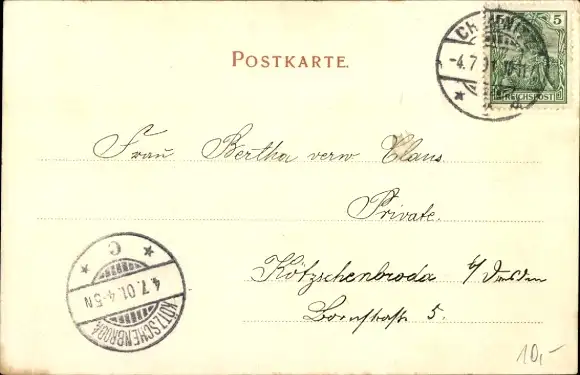 POSTKARTE.
5
REICHSPOST
CHEMNITZ
-4.7.01.
Frau Bertha verw Claus
Private.
Kötzschenbroda b/Dresden
5.
KÖTZSCHENBRODA
4.7.01.4-5N
C
10,-